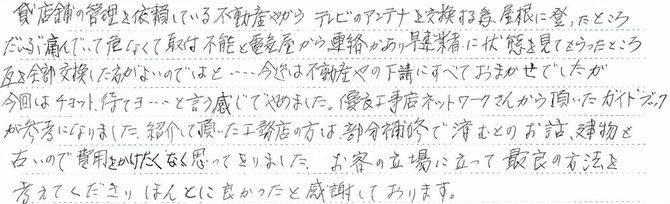 貸店舗の管理を依頼している不動産やからテレビのアンテナを交換する為、屋根に登ったところ
だいぶ痛んでいて危なくて取付不能と電気屋から連絡があり早速業者に状態を見てもらったところ
瓦を全部交換した方がよいのではと‥‥今迄は不動産やの下請にすべておまかせでしたが
今回はチョット、待てヨ…と言う感じでやめました。優良工事店ネットワークさんから頂いたガイドブック
が参考になりました。紹介して頂いた工務店の方は、部分補修で済むとのお話、建物も
古いので費用をかけたくなく思っておりました。お客の立場に立って最良の方法を
考えてくださりほんとに良かったと感謝しております。